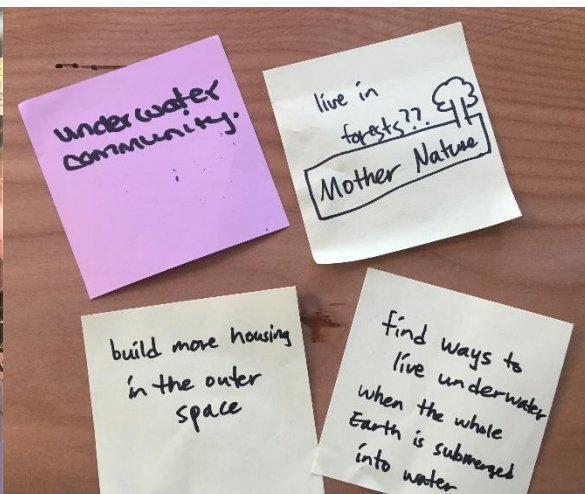 underwater
community.
live in
forests??
Mother Nature
build more housing
in the outer
space
find ways to
live underwater
when the whole
Earth is submerged
into water